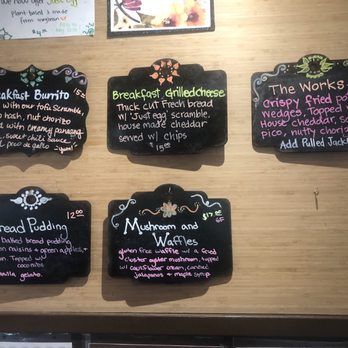 we now offer Just Egg
Plant-based & made
from mungbean
Breakfast Burrito 15
with our tofu scramble,
hash, nut chorizo
with creamy
sweet chile sauce
pico de gallo
Breakfast Grilled cheese
Thick cut French bread
w/ "Just egg scramble,
house made cheddar
served w/ chips
$15.00
The Works
Crispy fried
Wedges, Topped
House cheddar,
pico, nutty chorizo
Add Pulled Jack
Bread Pudding 12.00
baked bread pudding
raisins + green apples,
Topped w/
coconut
vanilla gelato.
Mushroom and
Waffles
GF
gluten free waffle w/ a fried
cluster oyster mushroom, topped
w/ cauliflower cream, candied
jalapenos + maple syrup